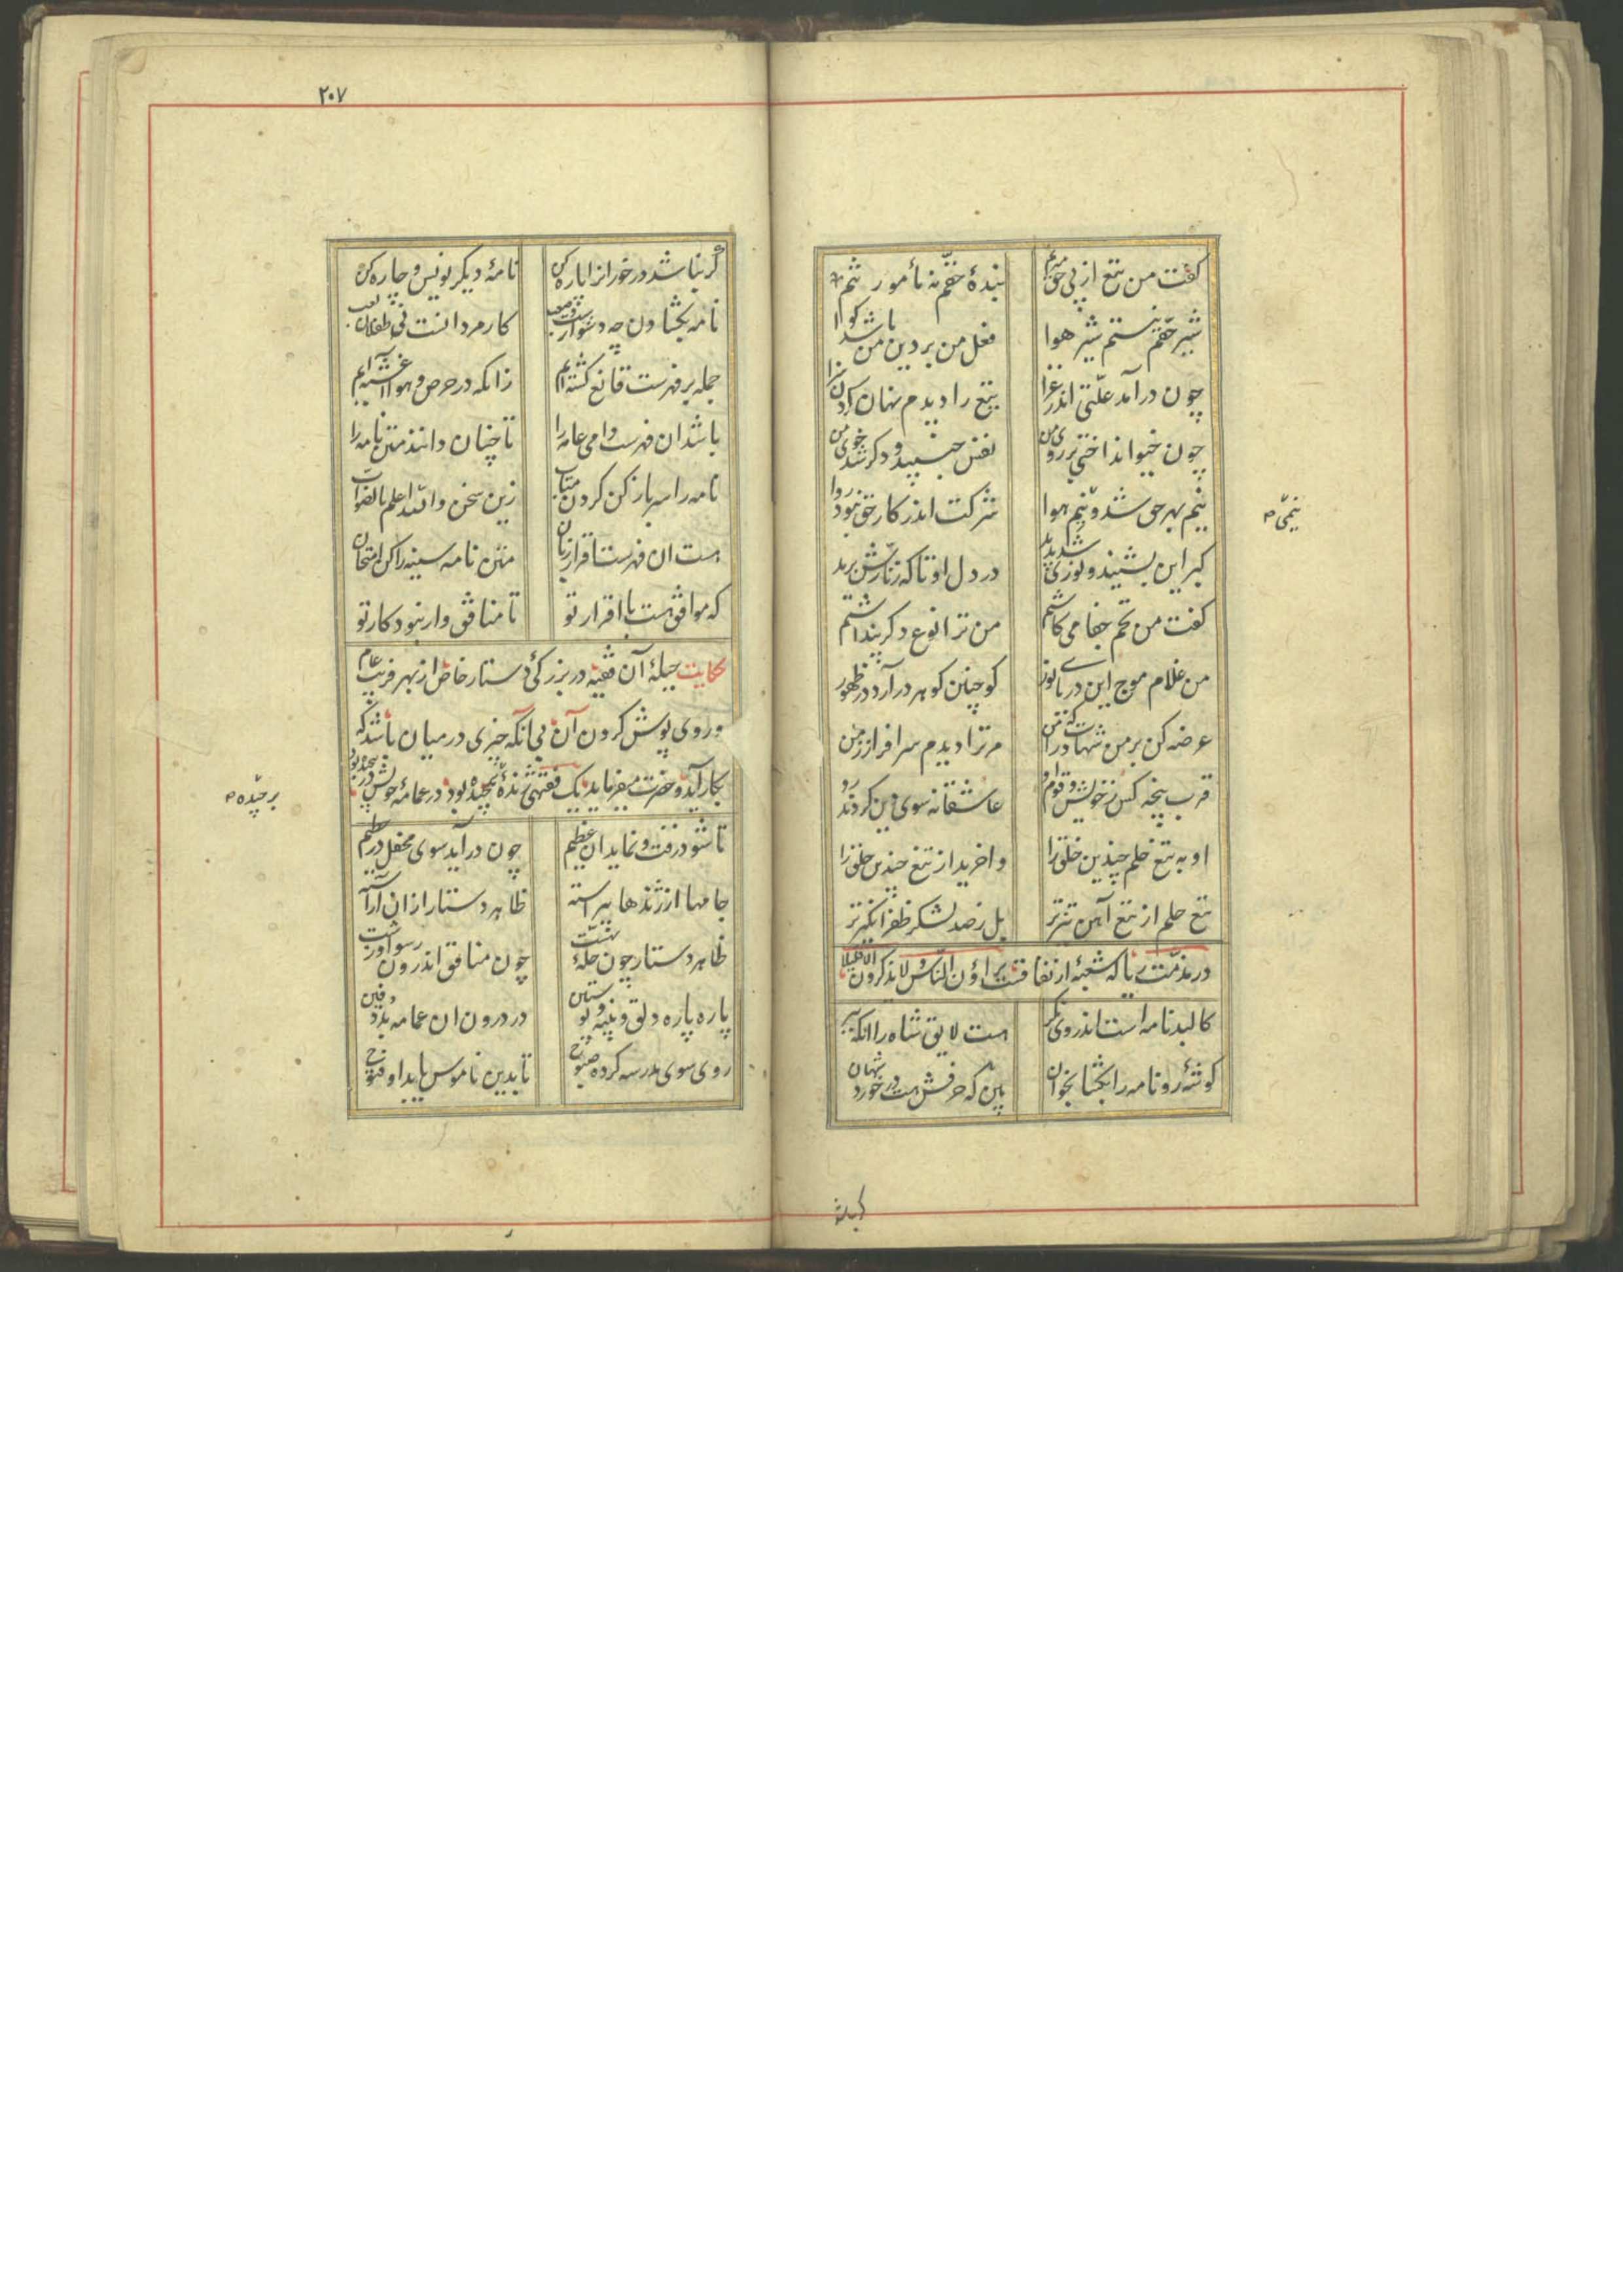 گفت من تیغ از پی حق میزنم
بندهٔ حقم نه مأمور تنم
شیر حقم نیستم شیر هوا
فعل من بر دین من باشد گوا
چون درآمد علّتی اندر غزا
تیغ را دیدم نهان کردن سزا
چون خیو انداختی بر روی من
نفس جنبید و دگر شد خوی من
نیم بهر حق شد و نیم هوا
شرکت اندر کار حق نبود روا
نیمی
گبر این بشنید و نوری شد پدید
در دل او تا که زنّارش برید
گفت من تخم جفا می کاشتم
من ترا نوع دگر پنداشتم
من غلام موج این دریای نور
کو چنین گوهر درآرد در ظهور
عرضه کن بر من شهادت را که من
مر ترا دیدم سرافراز زمن
قرب پنجه کس ز خویش و قوم او
عاشقانه سوی دین کردند رو
او به تیغ حلم چندین خلق را
واخرید از تیغ چندین حلق را
تیغ حلم از تیغ آهن تیزتر
بل ز صد لشکر ظفر انگیزتر
در مذمّت ریا که شعبهٔ از نفاقست یراؤن النّاس ولا یذکرون الا قلیلا
کالبد نامه است اندر وی نگر
هست لایق شاه را آنگه ببر
گوشهٔ رو نامه را بگشا بخوان
بین که حرفش هست در خورد شهان
گر نباشد
۲۰۷
گر نباشد در خور آنرا پاره کن
نامهٔ دیگر نویس و چاره کن
نامه بگشادن چه دشوارست و صعب
کار مردانست نی طفلان لعب
جمله بر فهرست قانع گشته ایم
زانکه در حرص و هوا آغشته ایم
باشد آن فهرست دامی عامه را
تا چنان دانند متن نامه را
نامه را سر باز کن گردن متاب
زین سخن والله اعلم بالصواب
هست آن فهرست اقرار زبان
متن نامه سینه را کن امتحان
که موافق هست با اقرار تو
تا منافق وار نبود کار تو
حکایت حیلهٔ آن فقیه در بزرگی دستار خاص از بهر فریب عام
و روی پوش کردن آن بی آنکه چیزی در میان باشد که
بکار آید و حضرت میفرماید یک فقیهی ژندهٔ
برچیده
تا شود زفت و نماید آن عظیم
چون درآید سوی محفل در حطیم
جامها از ژندها پیراسته
ظاهر دستار از آن آراسته
ظاهر دستار چون حلّهٔ بهشت
چون منافق اندرون رسوا و زشت
پاره پاره دلق و پنبه و پوستین
در درون آن عمامه بد دفین
روی سوی مدرسه کرده صبوح
تا بدین ناموس یابد او فتوح